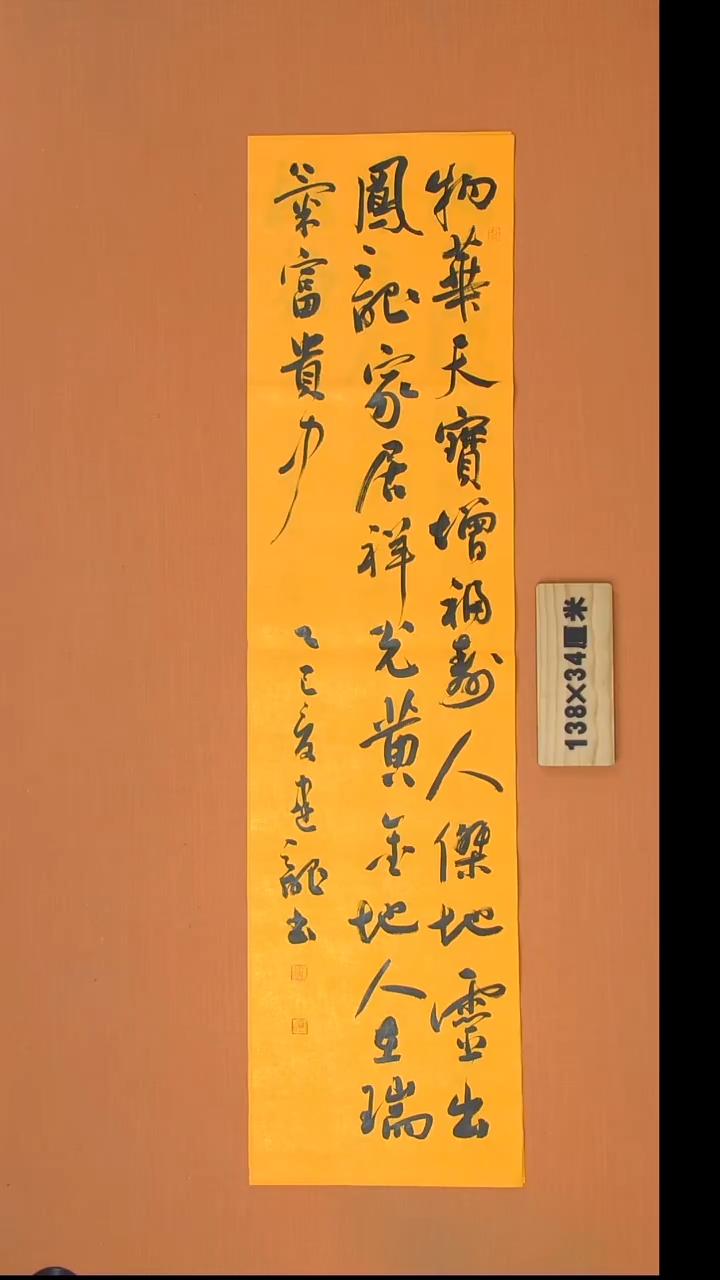 物華天寶增福壽人傑地靈出
鳳龍家居祥光黃金地人在瑞
氣富貴中
乙巳夏建龍書
138×34厘米